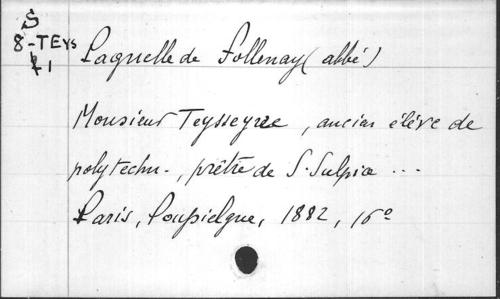 S
8-TEYS
1
Paguelle de Follenay (abbé)
Monsieur Teysseyrre, ancien élève de
polytechn-, prêtre de S. Sulpice ...
Paris, Poussielgue, 1882, 16°